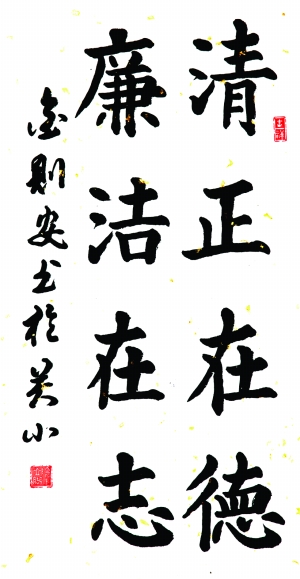 清正在德
廉洁在志
金则安书于芙小